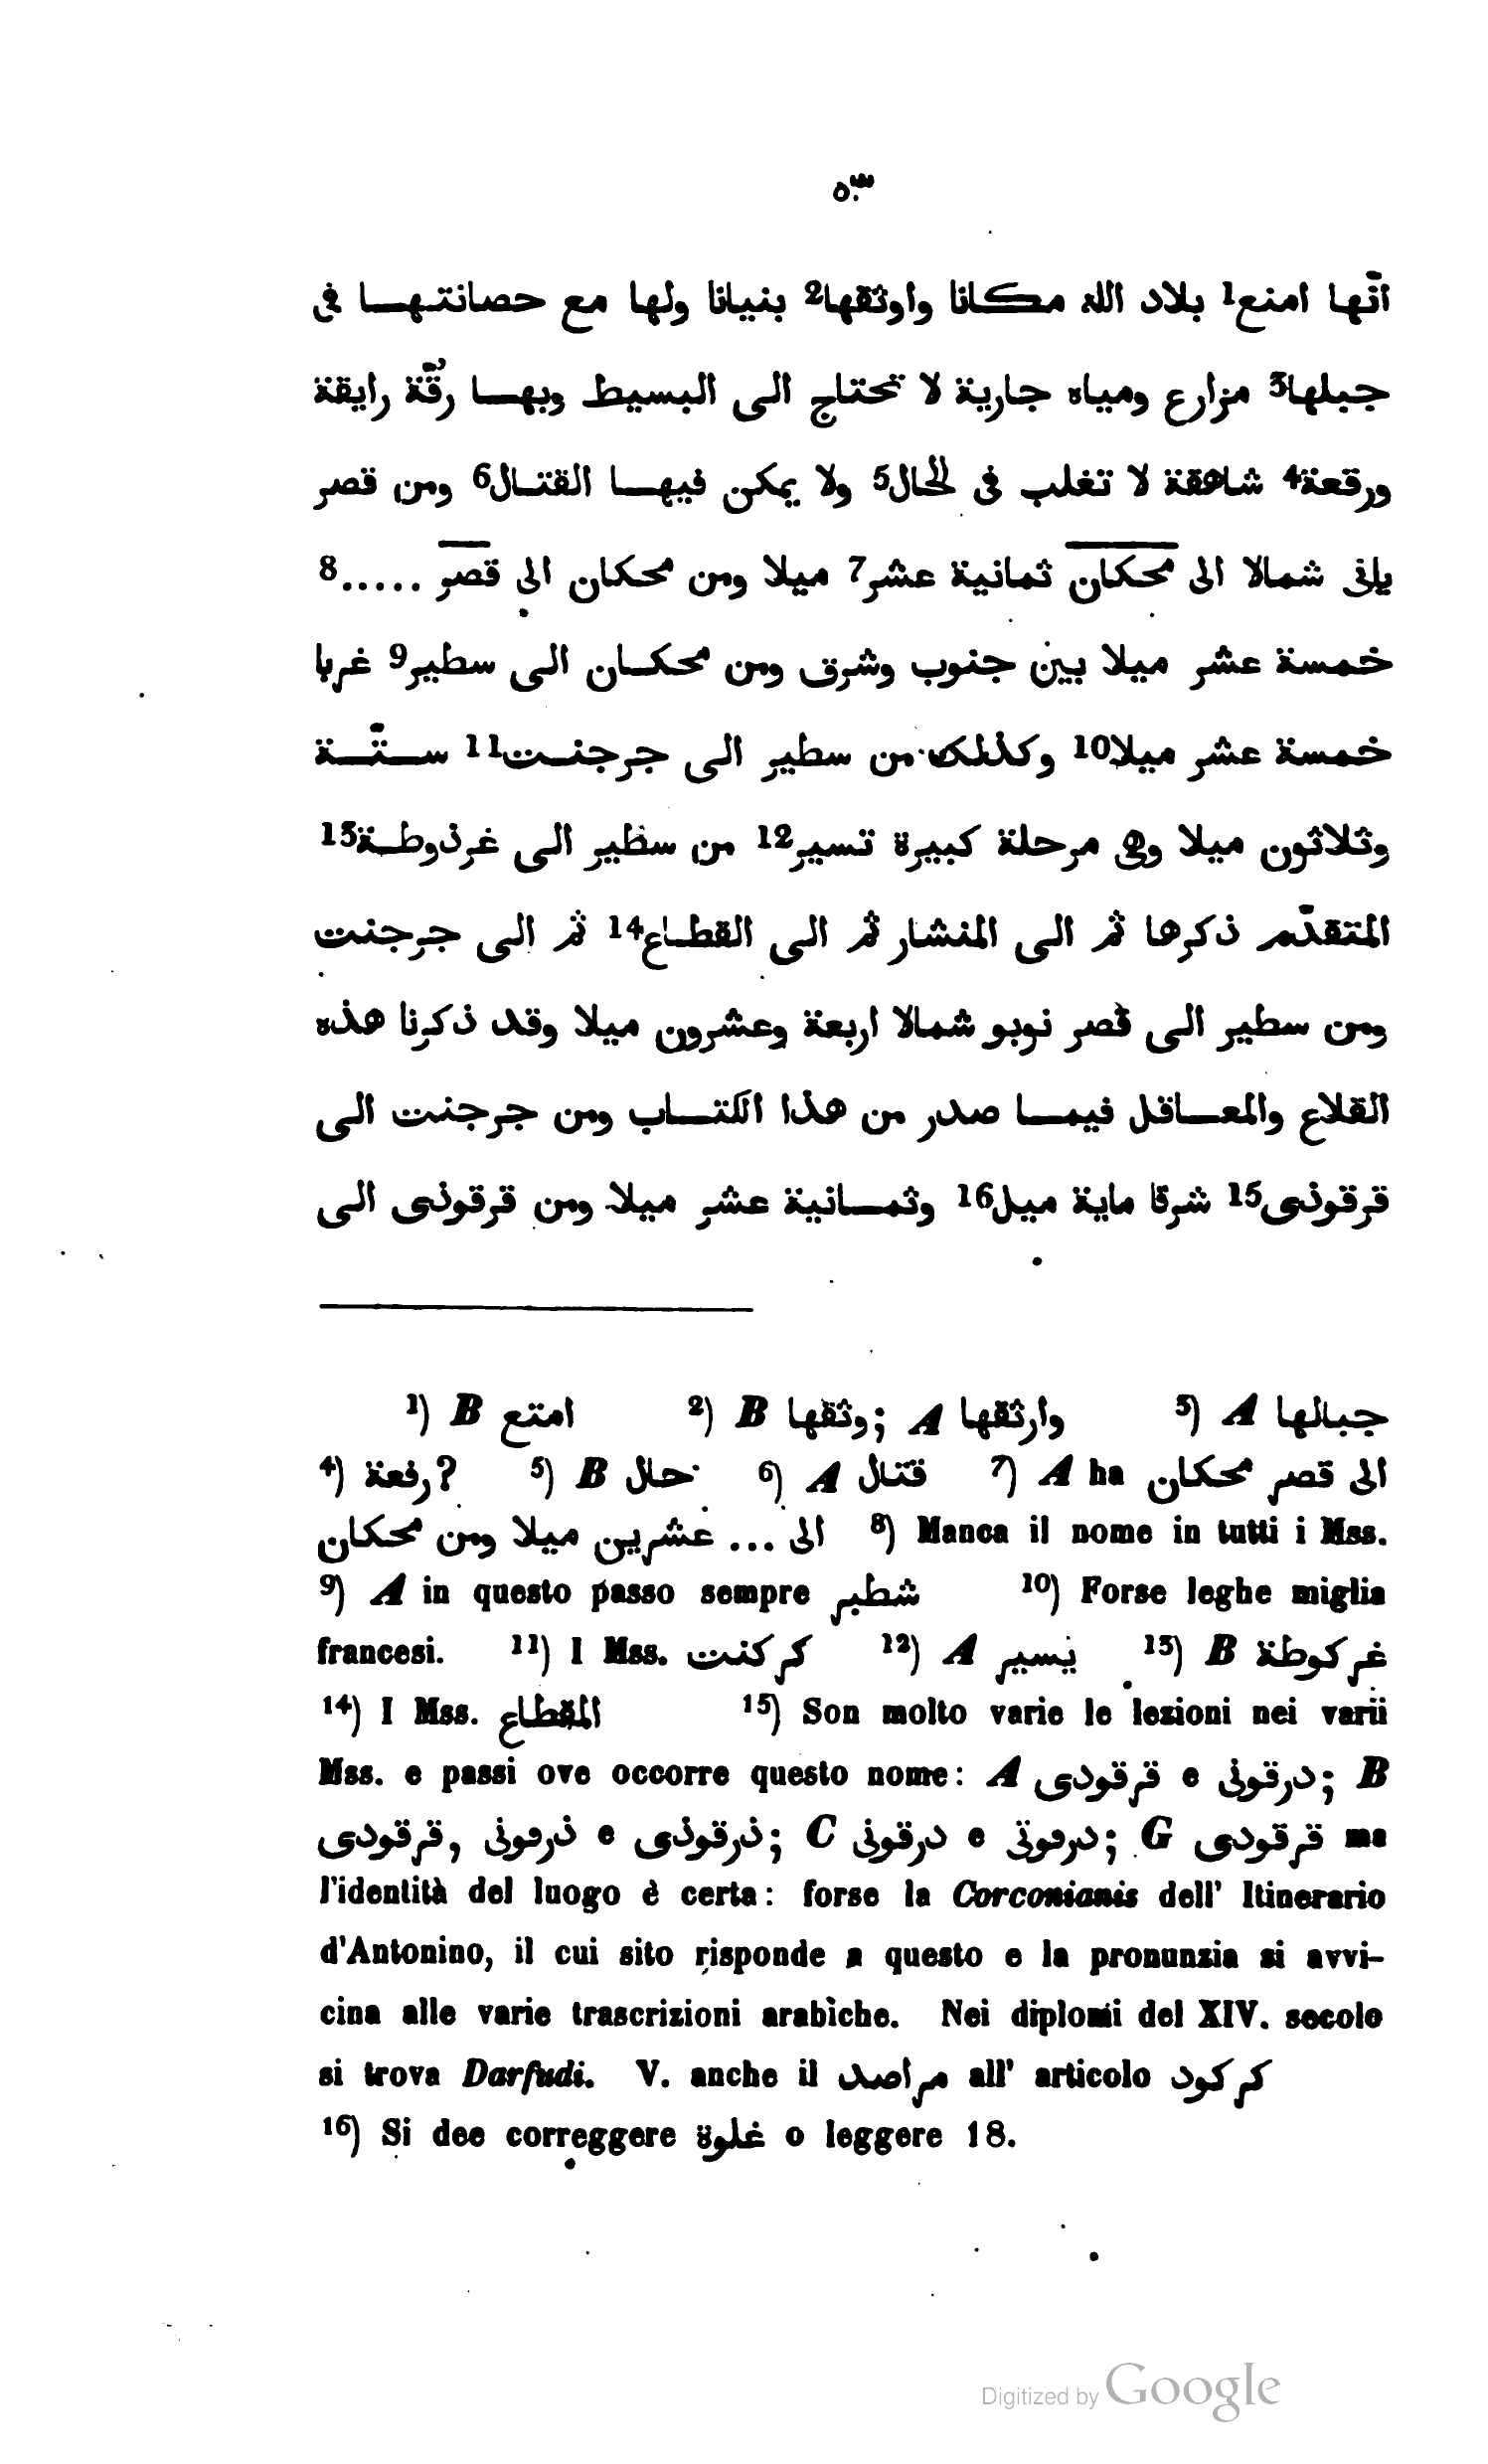 ٥٣
انّها امنع1 بلاد الله مكانا واوثقها2 بنيانا ولها مع حصانتها فى
جبلها3 مزارع ومياه جارية لا تحتاج الى البسيط وبها رقّة رايقة
ورقعة4 شاهقة لا تغلب فى الحال5 ولا يمكن فيها القتال6 ومن قصر
يانى شمالا الى محكان ثمانية عشر7 ميلا ومن محكان الى قصر .....8
خمسة عشر ميلا بين جنوب وشرق ومن محكان الى سطير9 غربا
خمسة عشر ميلا10 وكذلك من سطير الى جرجنت11 ستّة
وثلاثون ميلا وهى مرحلة كبيرة تسير12 من سطير الى غرذوطة13
المتقدّم ذكرها ثم الى المنشار ثم الى القطاع14 ثم الى جرجنت
ومن سطير الى قصر نوبو شمالا اربعة وعشرون ميلا وقد ذكرنا هذه
القلاع والمعاقل فيما صدر من هذا الكتاب ومن جرجنت الى
قرقوذى15 شرقا ماية ميل16 وثمانية عشر ميلا ومن قرقوذى الى
1) B امتع 2) B وثقها; A وارثقها 3) A جبالها
4) رفعة? 5) B حال 6) A قتال 7) A ha الى قصر محكان
الى ... عشرين ميلا ومن محكان 8) Manca il nome in tutti i Mss.
9) A in questo passo sempre شطبر 10) Forse leghe miglia
francesi. 11) I Mss. كركنت 12) A يسير 13) B غركوطة
14) I Mss. المقطاع 15) Son molto varie le lezioni nei varii
Mss. e passi ove occorre questo nome: A قرقودى e درقونى; B
قرقودى, ذرفونى e ذرقوذى; C درقونى e درفوتى; G قرقودى ma
l'identità del luogo è certa: forse la Corconianis dell' Itinerario
d'Antonino, il cui sito risponde a questo e la pronunzia si avvi-
cina alle varie trascrizioni arabiche. Nei diplomi del XIV. secolo
si trova Darfudi. V. anche il مراصد all' articolo كركود
16) Si dee correggere غلوة o leggere 18.
Digitized by Google